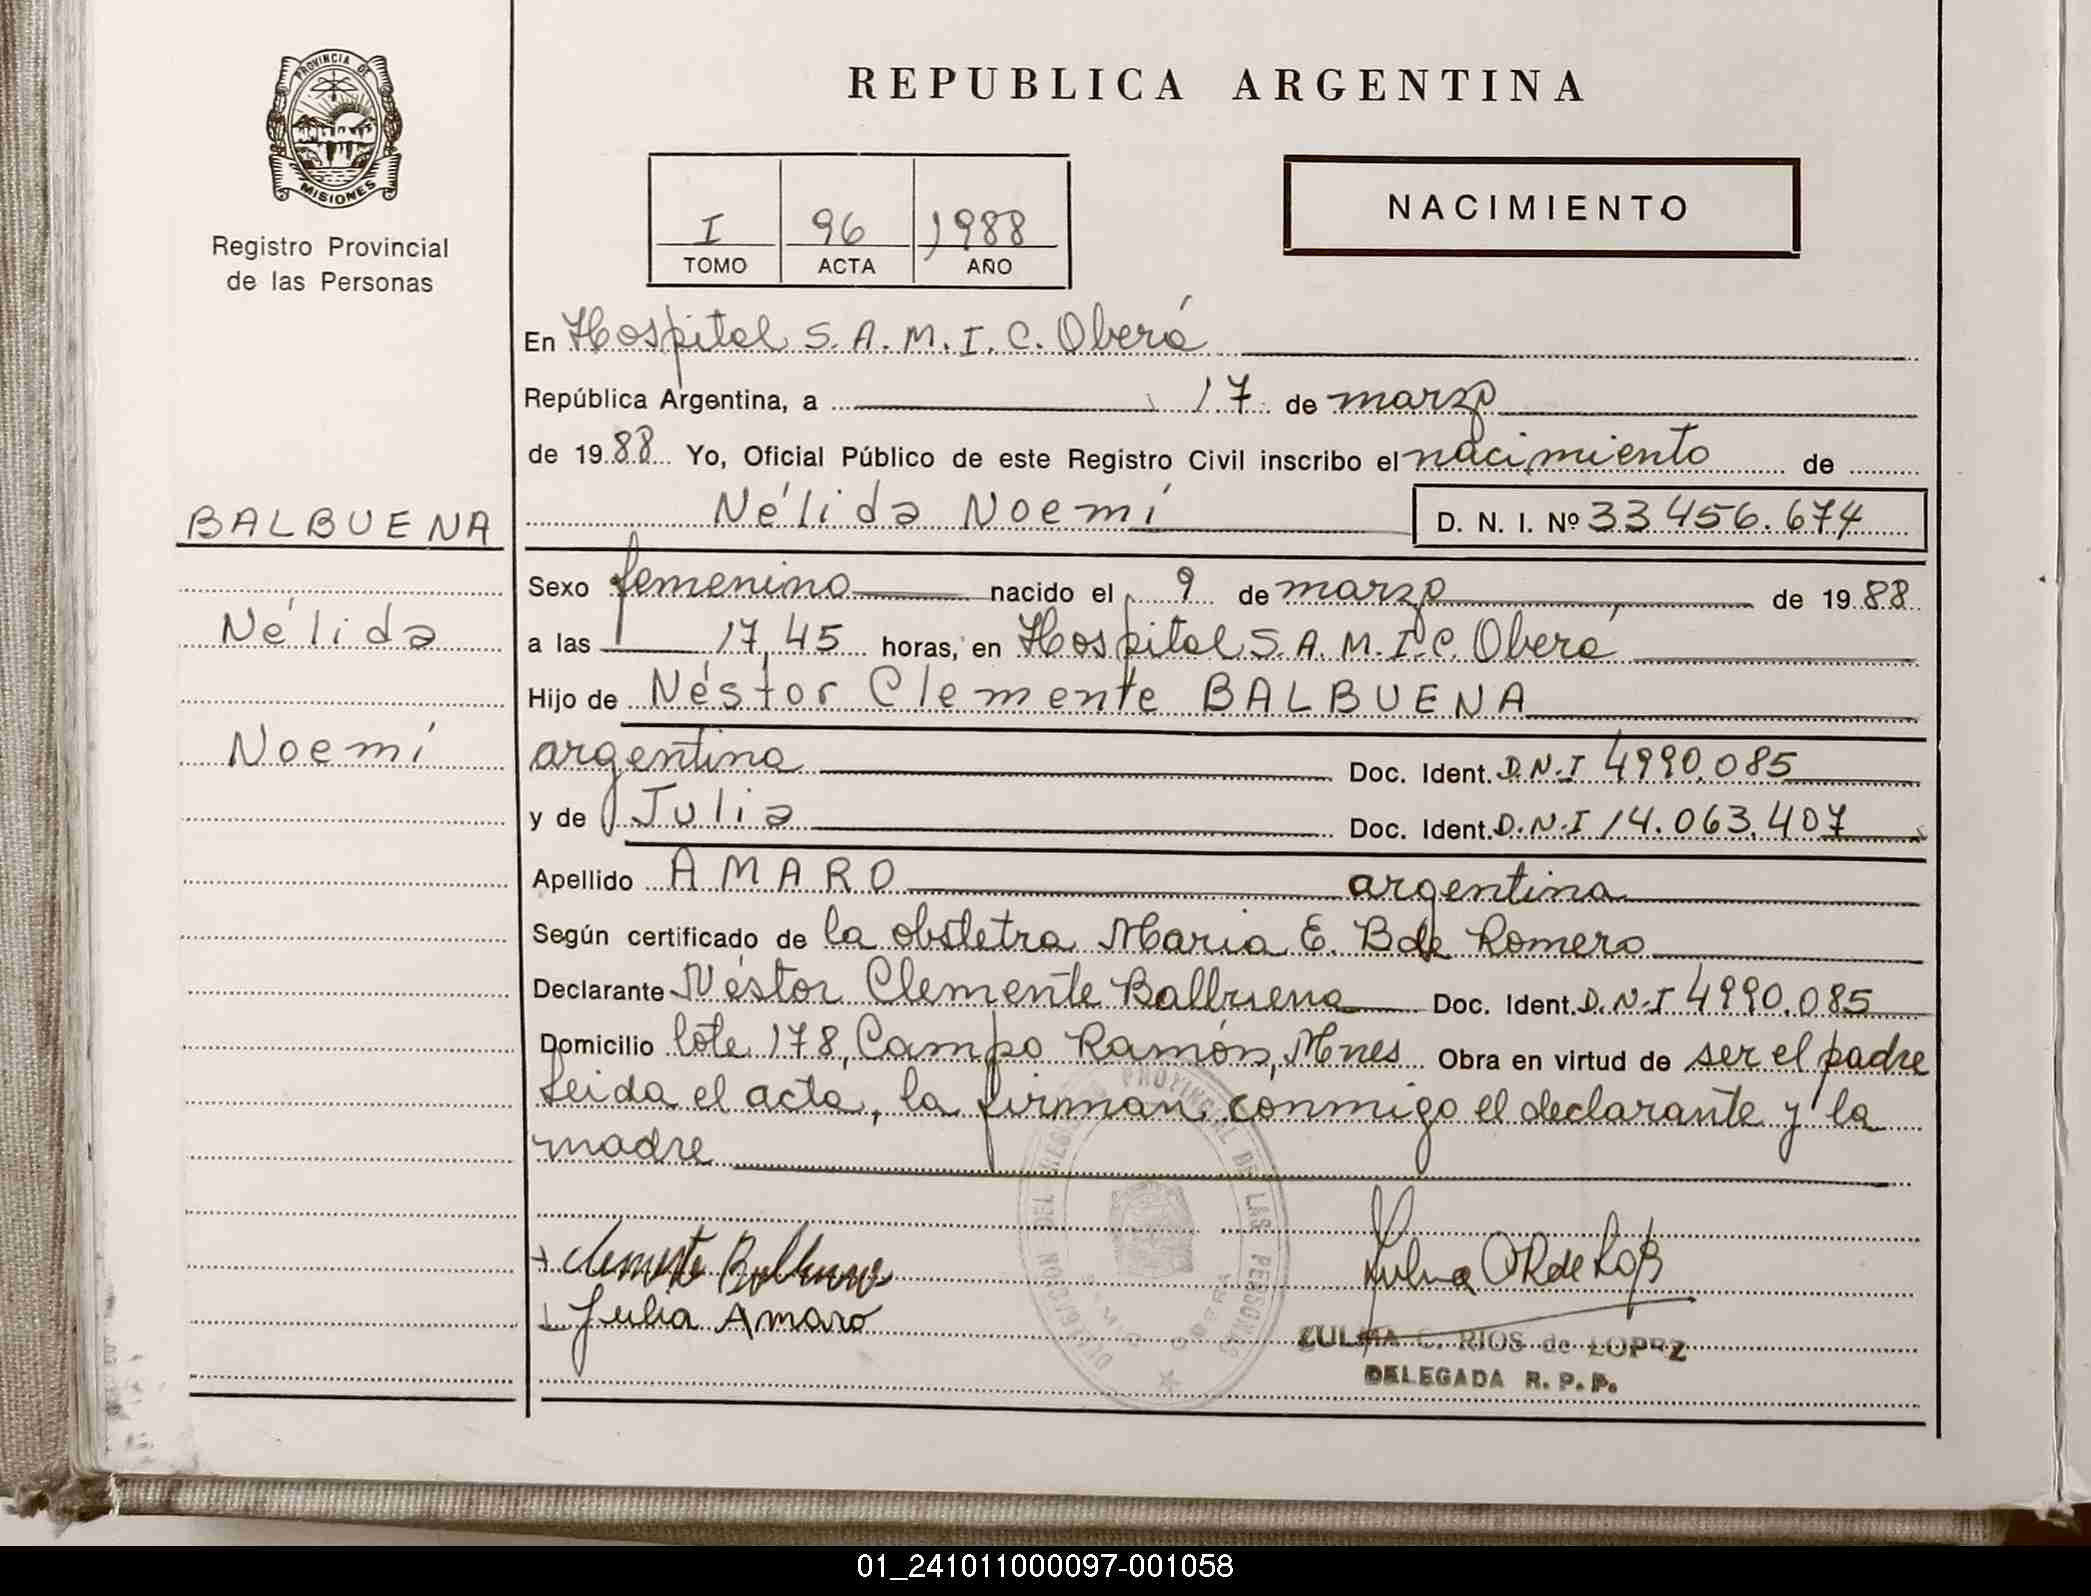 PROVINCIA DE
MISIONES
Registro Provincial
de las Personas
REPUBLICA ARGENTINA
I 96 1988
TOMO ACTA AÑO
NACIMIENTO
En Hospital S.A.M.I.C. Oberá
República Argentina, a 17 de marzo
de 1988 Yo, Oficial Público de este Registro Civil inscribo el nacimiento de
BALBUENA
Nélida Noemí D. N. I. Nº 33456.674
Sexo femenino nacido el 9 de marzo de 1988
Nélida
a las 17,45 horas, en Hospital S.A.M.I.C. Oberá
Hijo de Néstor Clemente BALBUENA
Noemí
argentina Doc. Ident. D.N.I 4990.085
y de Julia Doc. Ident. D.N.I 14.063.407
Apellido AMARO argentina
Según certificado de la obstetra Maria E. B de Romero
Declarante Néstor Clemente Balbuena Doc. Ident. D.N.I 4990.085
Domicilio lote 178, Campo Ramón, Mnes Obra en virtud de ser el padre
Leida el acta, la firman conmigo el declarante y la
madre
DELEGACION DEL REGISTRO PROVINCIAL DE LAS PERSONAS
Clemente Balbuena
Julia Amaro
ZULMA C. RIOS de LOPEZ
DELEGADA R. P. P.
01_241011000097-001058